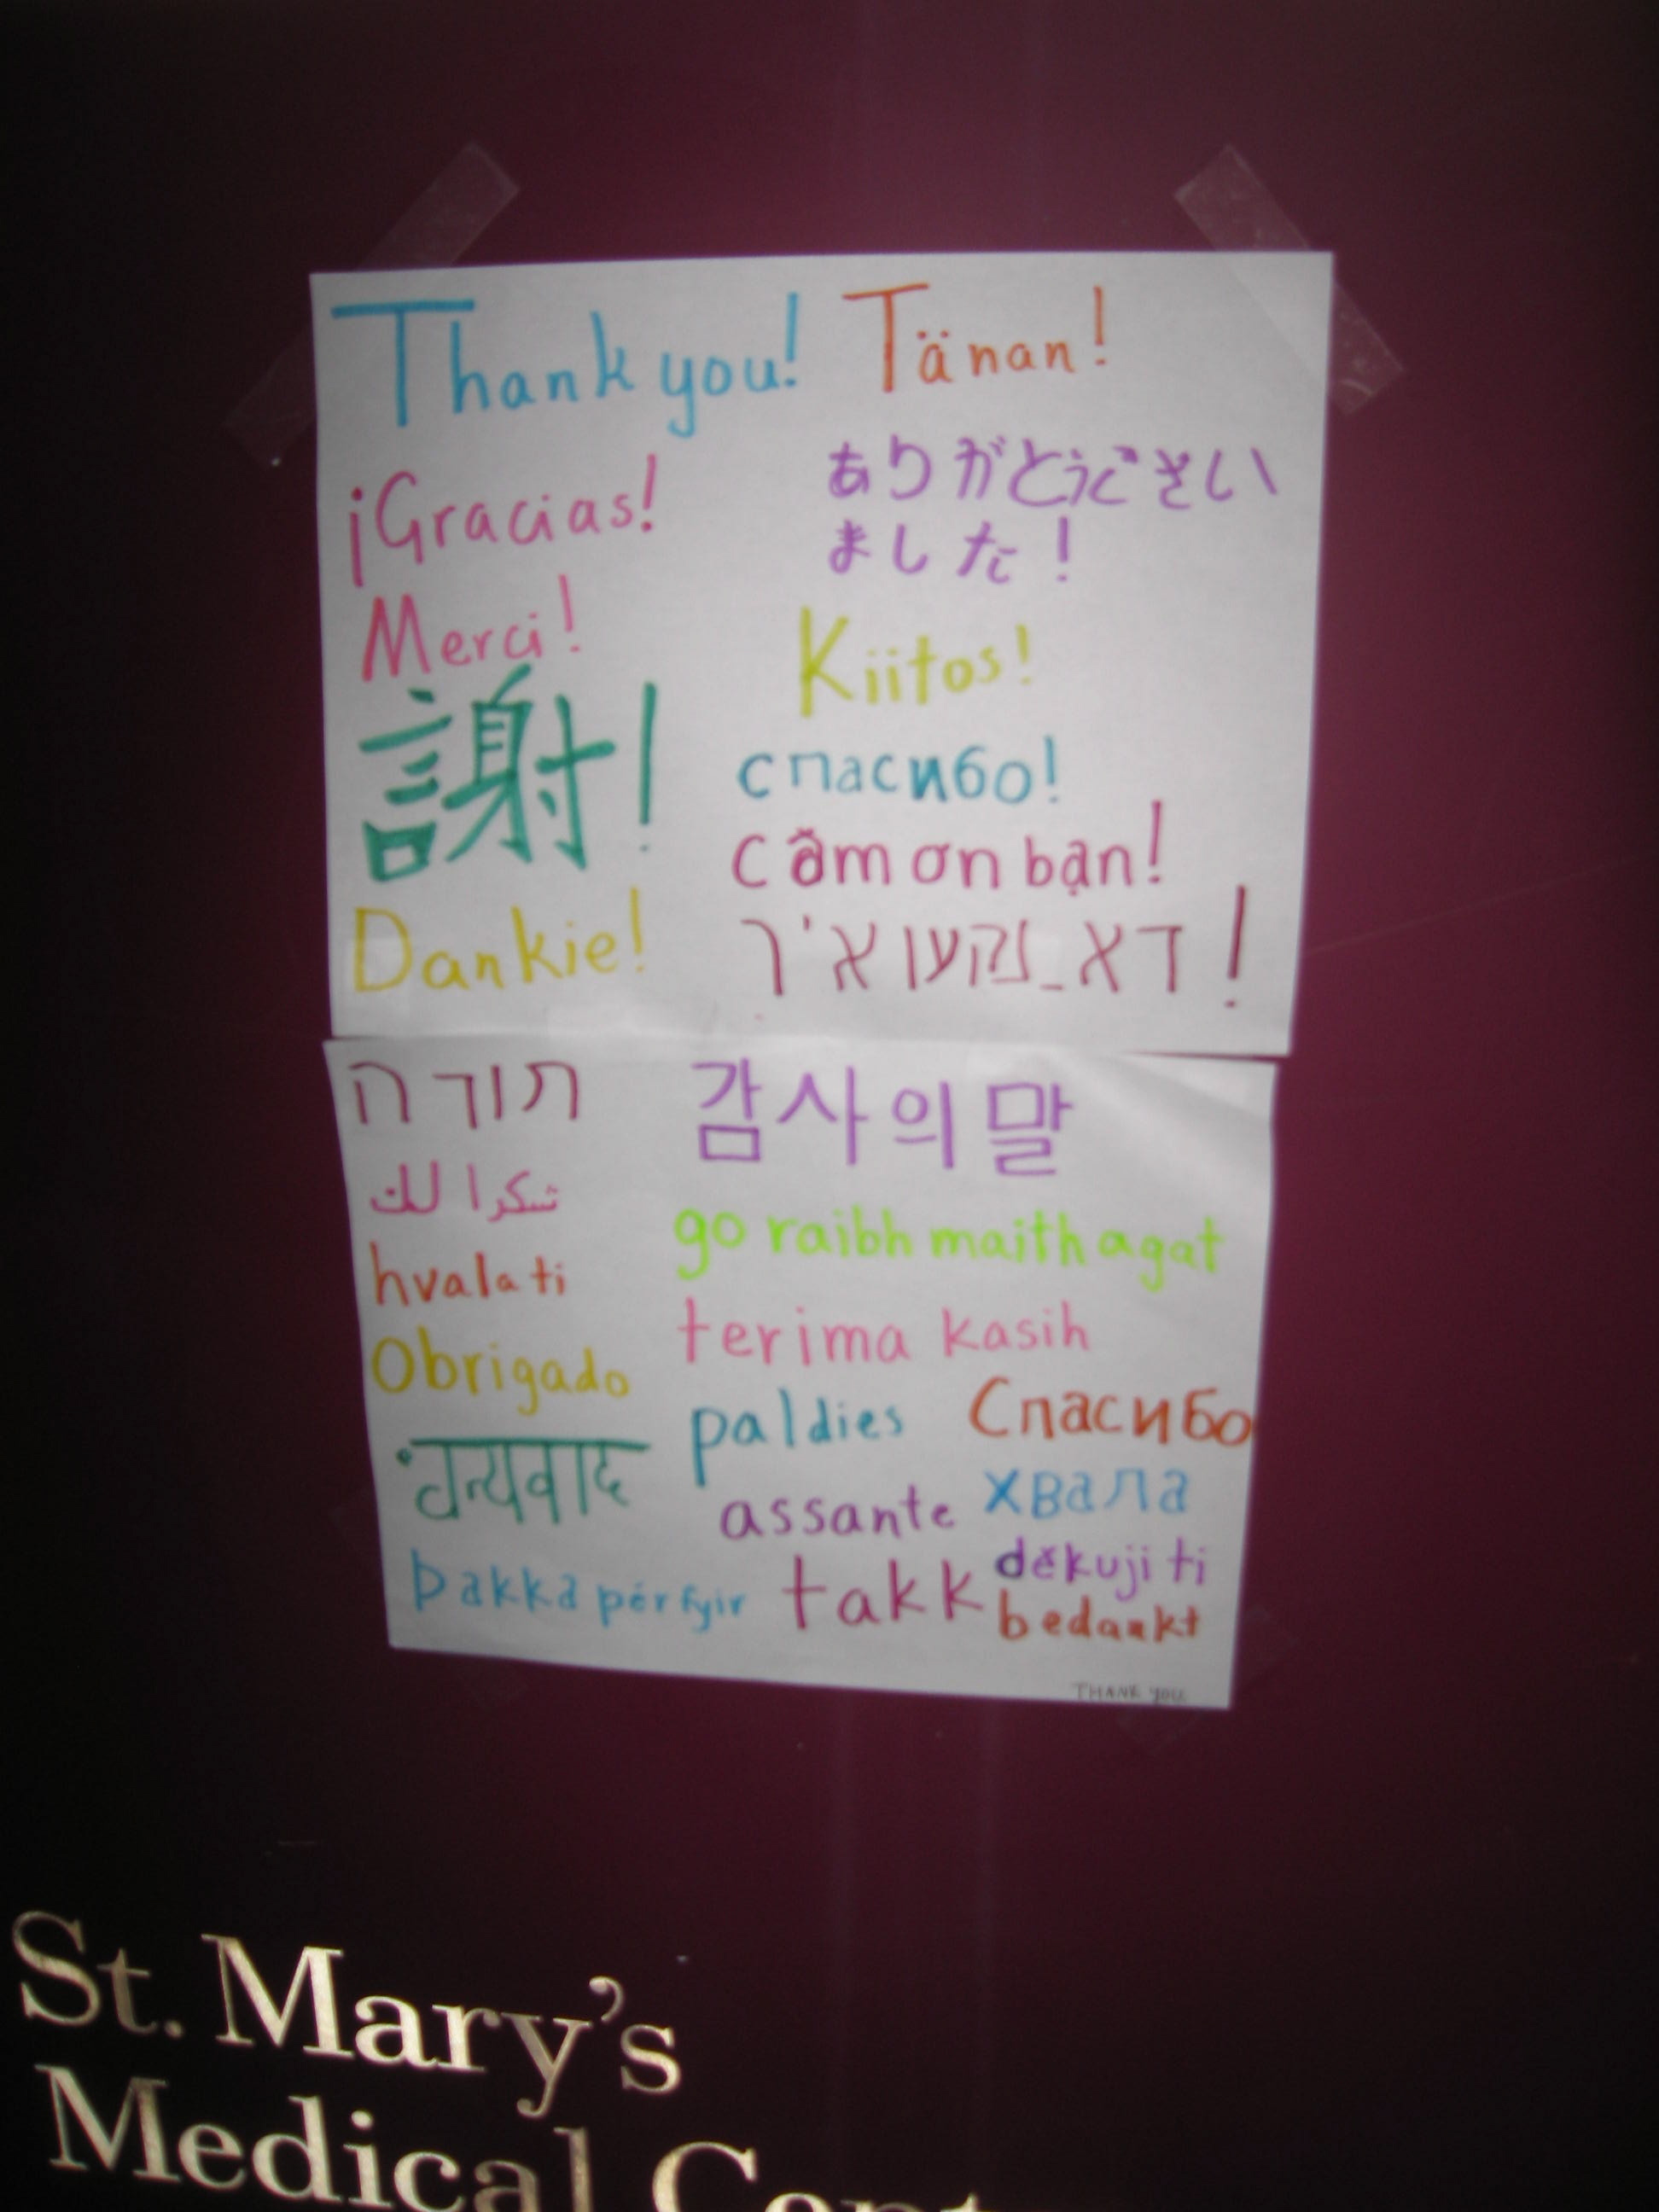 Thank you! Tänan!
¡Gracias!
ありがとうございい
ました!
Merci!
Kiitos!
謝!
спасибо!
Cãm ơn bạn!
Dankie!
דאַנקען אי'ך!
תודה
감사의 말
شكرا لك
go raibh maith agat
hvala ti
terima kasih
Obrigado
paldies Спасибо
धन्यवाद
assante хвала
děkuji ti
Þakka pér fyir takk
bedankt
THANK YOU
St. Mary's
Medical